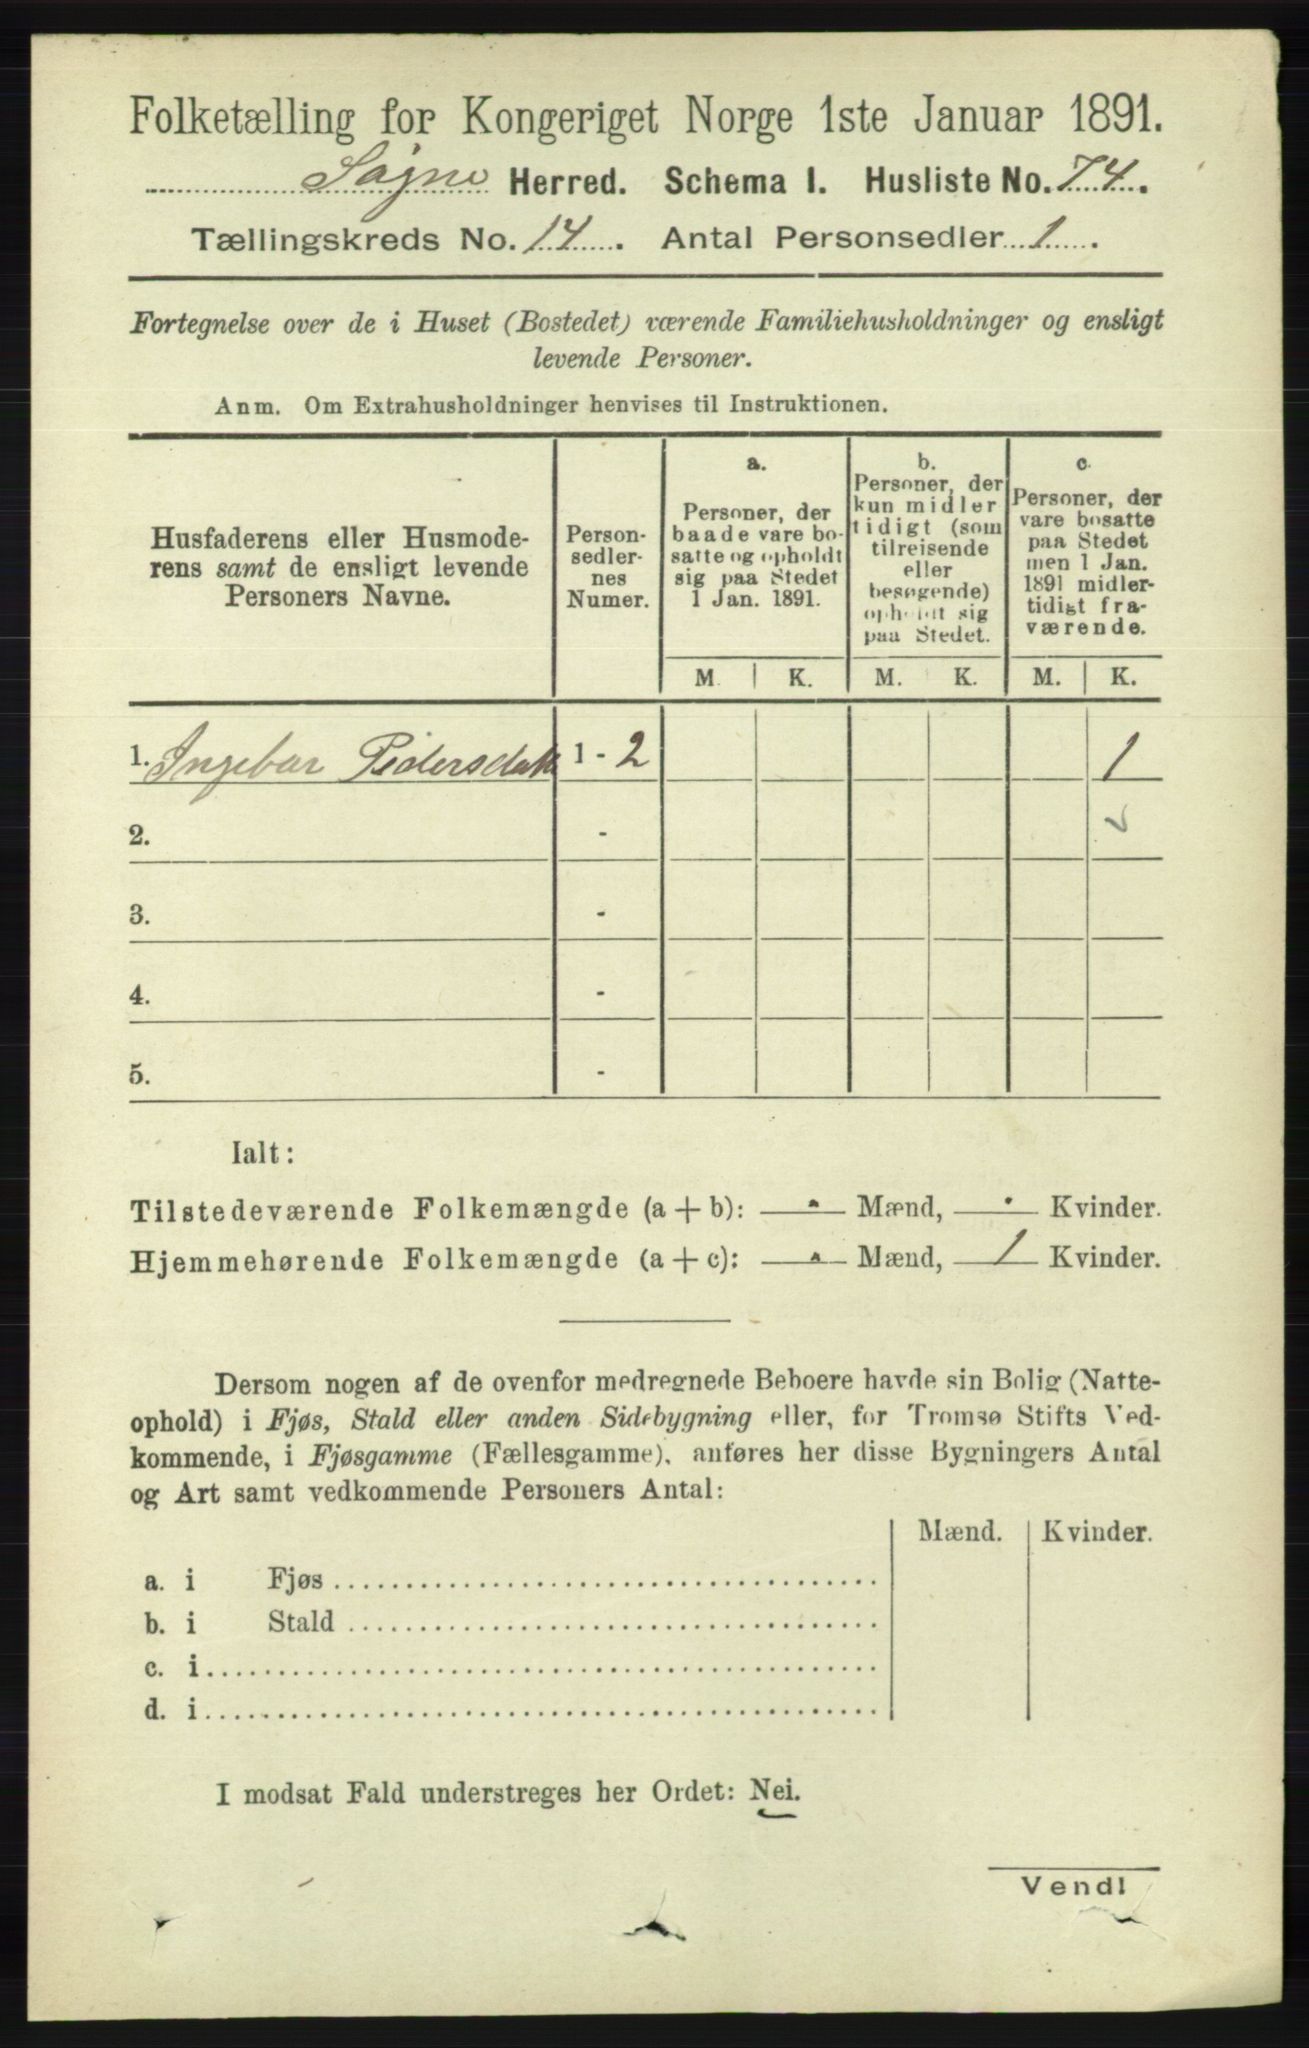 Folketælling for Kongeriget Norge 1ste Januar 1891.
Søgne Herred. Schema I. Husliste No. 74.
Tællingskreds No. 14. Antal Personsedler 1.
Fortegnelse over de i Huset (Bostedet) værende Familiehusholdninger og ensligt
levende Personer.
Anm. Om Extrahusholdninger henvises til Instruktionen.
Husfaderens eller Husmode-
rens samt de ensligt levende
Personers Navne.
Person-
sedler-
nes
Numer.
a.
Personer, der
baade vare bo-
satte og opholdt
sig paa Stedet
1 Jan. 1891.
b.
Personer, der
kun midler
tidigt (som
tilreisende
eller
besøgende)
opholdt sig
paa Stedet.
c.
Personer, der
vare bosatte
paa Stedet
men 1 Jan.
1891 midler-
tidigt fra-
værende.
M. K. M. K. M. K.
1. Ingebor Pedersdatt 1 - 2 1
2. -
3. -
4. -
5. -
Ialt:
Tilstedeværende Folkemængde (a + b): Mænd, Kvinder.
Hjemmehørende Folkemængde (a + c): Mænd, 1 Kvinder.
Dersom nogen af de ovenfor medregnede Beboere havde sin Bolig (Natte-
ophold) i Fjøs, Stald eller anden Sidebygning eller, for Tromsø Stifts Ved-
kommende, i Fjøsgamme (Fællesgamme), anføres her disse Bygningers Antal
og Art samt vedkommende Personers Antal:
Mænd. Kvinder.
a. i Fjøs
b. i Stald
c. i
d. i
I modsat Fald understreges her Ordet: Nei.
Vend!